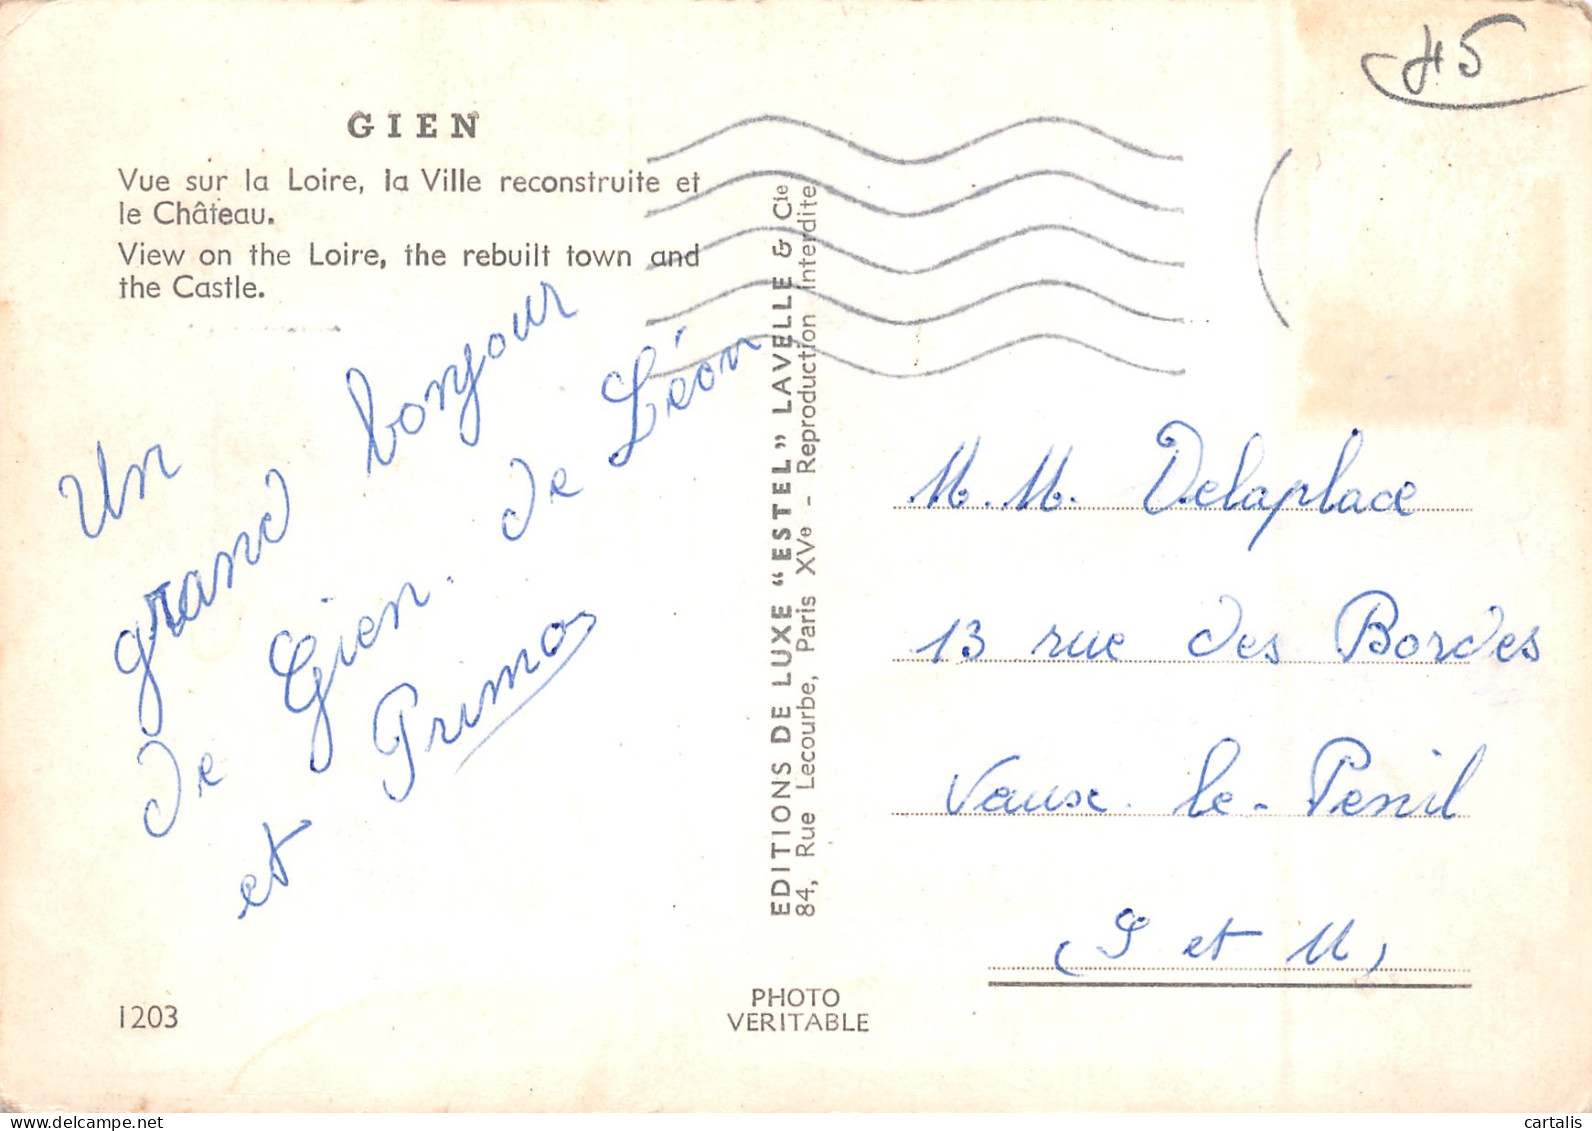 45
GIEN
Vue sur la Loire, la Ville reconstruite et
le Château.
View on the Loire, the rebuilt town and
the Castle.
Un
grand bonjour
de Gien. de Léon
et Primo
EDITIONS DE LUXE "ESTEL" LAVELLE & Cie
84, Rue Lecourbe, Paris XVe - Reproduction Interdite
M. M. Delaplace
13 rue des Bordes
Vaux-le-Penil
(S et M)
1203
PHOTO
VERITABLE
delcampe.net
cartalis